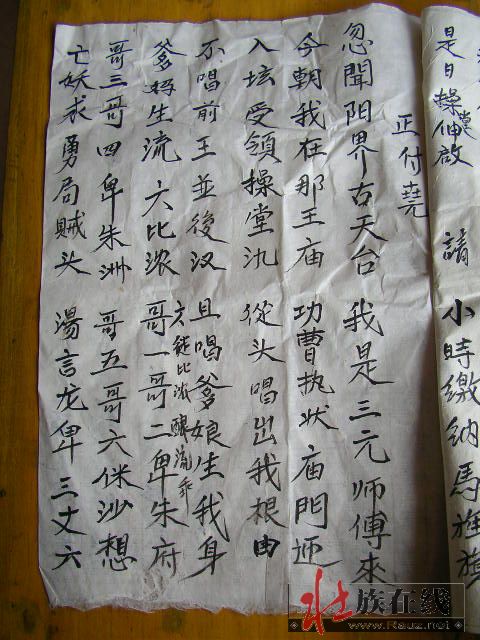 是日操堂伸啟 請 小時繳納馬
正付堯
忽聞阳界古天台 我是三元师傅來
今朝我在那王庙 功曹执状庙門迎
入坛受領操堂氿 從头唱出我根由
不唱前王並後汉 且唱爹娘生我身
爹妈生流六比浓 哥一哥二卑朱府
六徒比浓 釀流
哥三哥四卑朱洲 哥五哥六侎沙想
亡妖求勇局贼头 湯言龙卑三丈六
壮族在线
www.Rauz.net